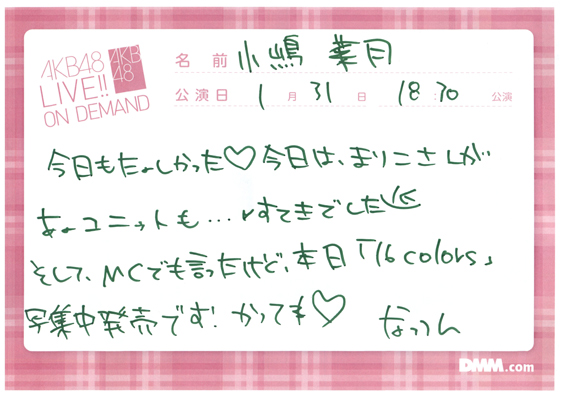 AKB48
LIVE!!
ON DEMAND
AKB
48
名前 小嶋 菜月
公演日 1月31日 18:30 公演
今日もたのしかった♡今日は、まりこさんが
あのユニットも...すてきでした
そして、MCでも言ったけど、本日「16 colors」
写集中発売です!かってネ♡
なっつん
DMM.com